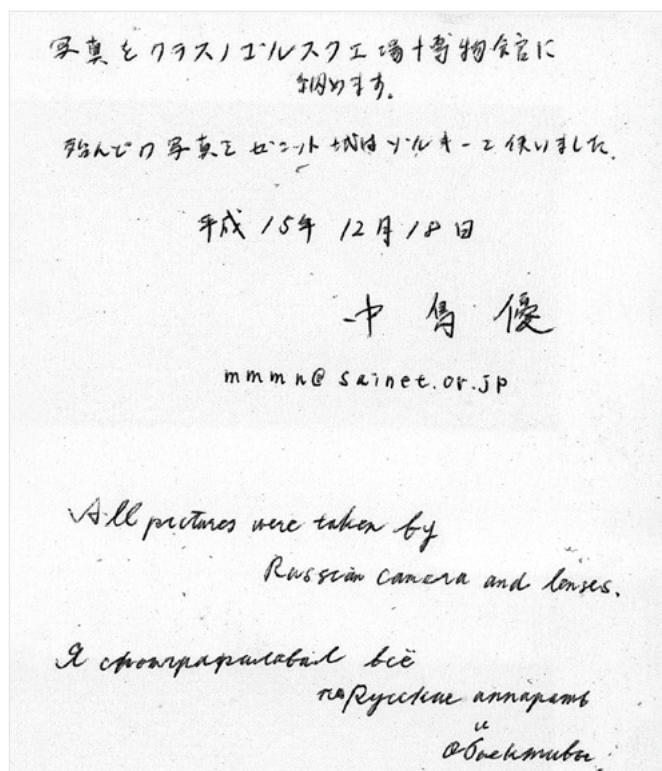 写真をクラスノゴルスク工場博物館に
納めます。
殆んどの写真をゼニット或はゾルキーで使いました。
平成 15年 12月 18日
中島 優
mmmn@sainet.or.jp
All pictures were taken by
Russian camera and lenses.
Я сфотографировал всё
на Русские аппараты
и
объективы